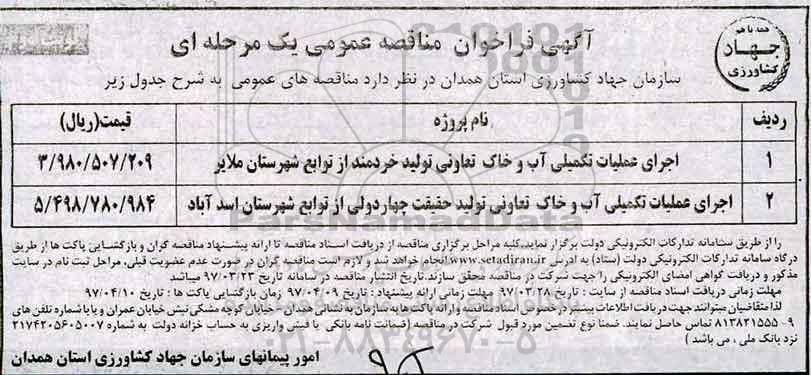 همه با هم
جهاد
کشاورزی
آگهی فراخوان مناقصه عمومی یک مرحله ای
سازمان جهاد کشاورزی استان همدان در نظر دارد مناقصه های عمومی به شرح جدول زیر
ردیف نام پروژه قیمت(ریال)
۱ اجرای عملیات تکمیلی آب و خاک تعاونی تولید خردمند از توابع شهرستان ملایر ۳/۹۸۰/۵۰۷/۲۰۹
۲ اجرای عملیات تکمیلی آب و خاک تعاونی تولید حقیقت چهاردولی از توابع شهرستان اسد آباد ۵/۴۹۸/۷۸۰/۹۸۴
را از طریق سامانه تدارکات الکترونیکی دولت برگزار نماید.کلیه مراحل برگزاری مناقصه از دریافت اسناد مناقصه تا ارائه پیشنهاد مناقصه گران و بازگشایی پاکت ها از طریق
درگاه سامانه تدارکات الکترونیکی دولت (ستاد) به آدرس www.setadiran.ir انجام خواهد شد و لازم است مناقصه گران در صورت عدم عضویت قبلی، مراحل ثبت نام در سایت
مذکور و دریافت گواهی امضای الکترونیکی را جهت شرکت در مناقصه محقق سازند.تاریخ انتشار مناقصه در سامانه تاریخ ۹۷/۰۳/۲۳ میباشد
مهلت زمانی دریافت اسناد مناقصه از سایت : تاریخ ۹۷/۰۳/۲۸ مهلت زمانی ارائه پیشنهاد : تاریخ ۹۷/۰۴/۰۹ زمان بازگشایی پاکت ها : تاریخ ۹۷/۰۴/۱۰
لذا متقاضیان میتوانند جهت دریافت اطلاعات بیشتر در خصوص اسناد مناقصه و ارائه پاکت ها به سازمان به نشانی همدان - خیابان کوچه مشکی نبش خیابان عمران و یا با شماره تلفن های
۹- ۸۱۳۸۲۱۵۵۵ تماس حاصل نمایند. ضمنا نوع تضمین مورد قبول شرکت در مناقصه (ضمانت نامه بانکی یا فیش واریزی به حساب خزانه دولت به شماره ۲۱۷۴۲۰۵۶۰۵۰۰۷
نزد بانک ملی ، می باشد )
امور پیمانهای سازمان جهاد کشاورزی استان همدان
ParsNamadData
۰۲۱-۸۸۳۴۹۶۷۰-۵